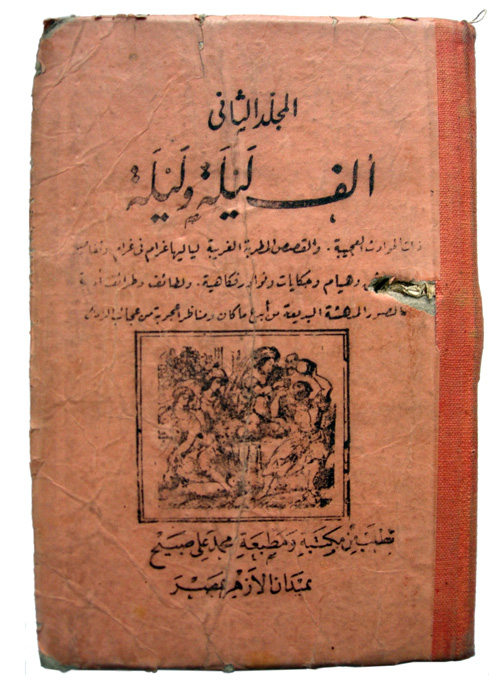 المجلد الثانى
ألف لَيْلَة وَلَيْلَة
ذات الحوادث العجيبة . والقصص المطربة الغريبة لياليها غرام فى غرام وتفاصيل
وهيام وحكايات ونوادر فكاهية . ولطائف وطرائف أدبية
بالصور المدهشة البديعة من أبدع ما كان ومناظر أعجوبة من عجائب الزمان
تطلب من مكتبة ومطبعة محمد على صبيح
بميدان الأزهر بمصر